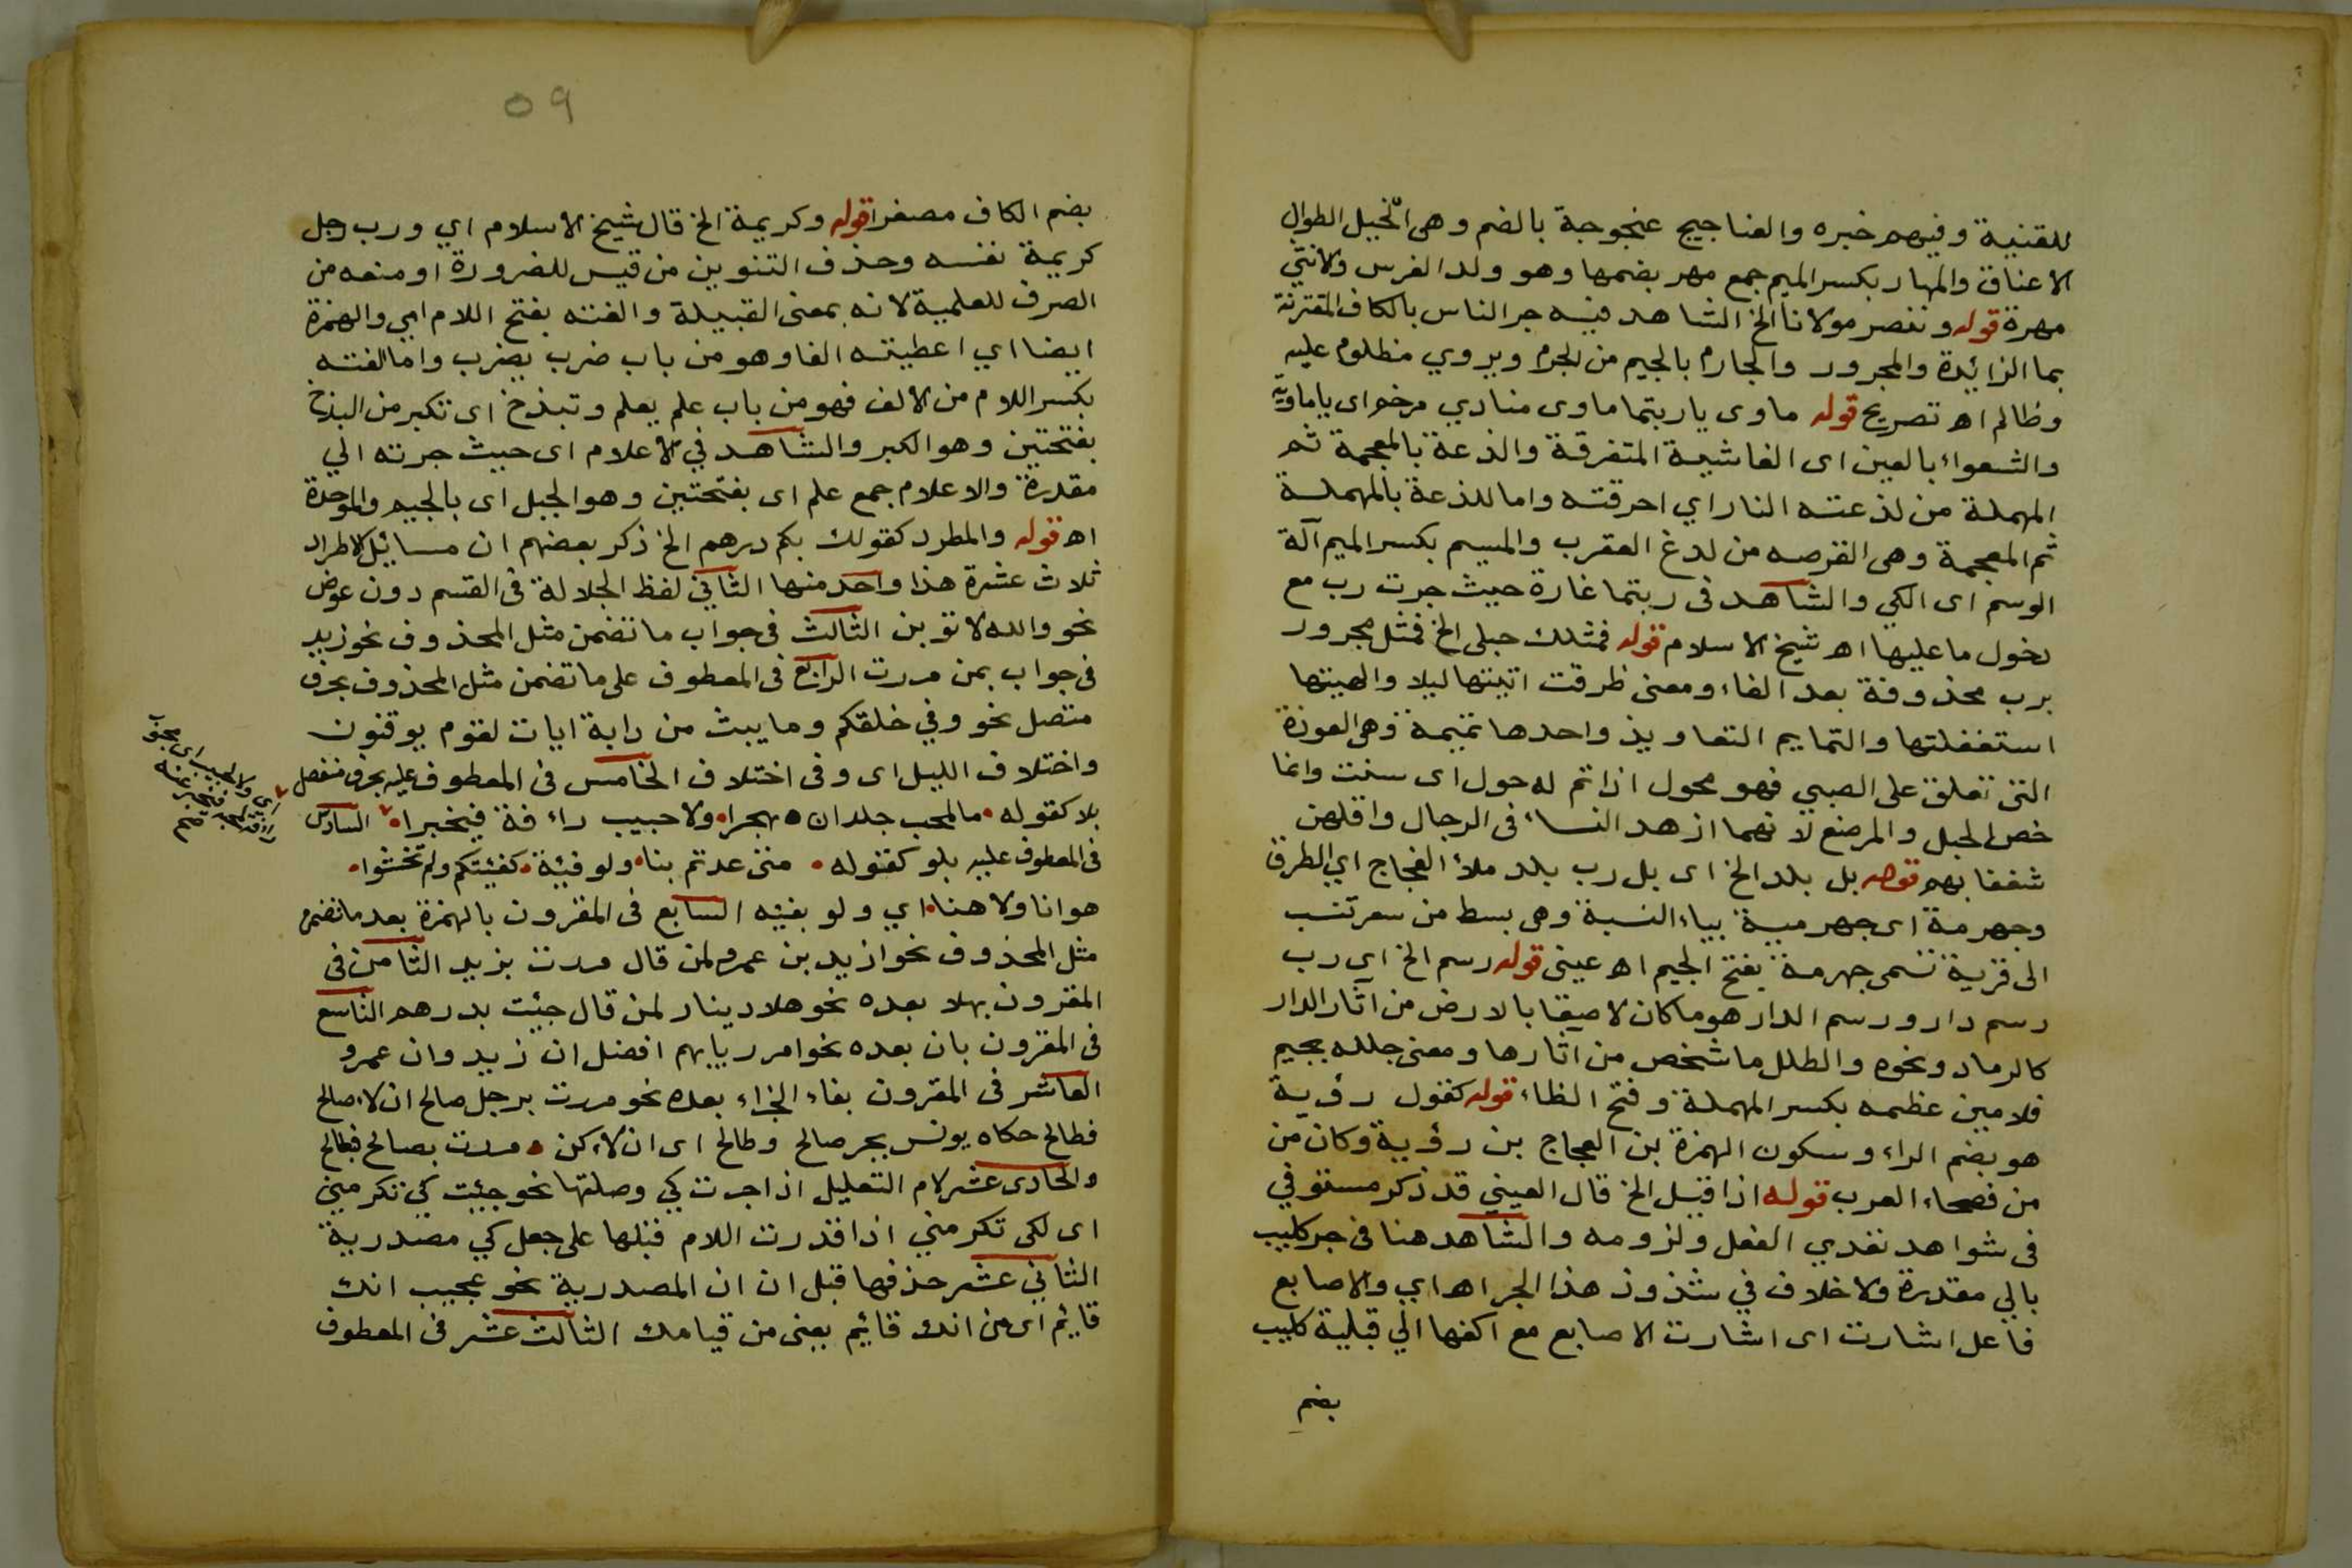 للقنية وفيهم خبره والعناجيج عنجوجة بالضم وهى الخيل الطوال
الاعناق والمهار بكسر الميم جمع مهر بضمها وهو ولد الفرس والانثى
مهرة قوله وننصر مولانا الخ الشاهد فيه جر الناس بالكاف المقترنة
بما الزائدة والمجرور والجارم بالجيم من الجرم ويروي مظلوم عليه
وظالم اه تصريح قوله ماوى ياربتما ماوى منادي مرخم اى ياماوية
والشعواء بالعين اى الغاشية المتفرقة والذعة بالمعجمة ثم
المهملة من لذعته النار اي احرقته واما اللذعة بالمهملة
ثم المعجمة وهى القرصه من لدغ العقرب والميسم بكسر الميم آلة
الوسم اى الكي والشاهد فى ربتما غارة حيث جرت رب مع
دخول ما عليها اه شيخ الاسلام قوله فمثلك حبلى الخ فمثل مجرور
برب محذوفة بعد الفاء ومعنى طرقت اتيتها ليلا والهيتها
استغفلتها والتمايم التعاويذ واحدها تميمة وهى العوذة
التى تعلق على الصبي فهو محول اذا تم له حول اى سنة وانما
خص الحبل والمرضع لانهما ازهد النساء فى الرجال واقلهن
شغفا بهم قوله بل بلد الخ اى بل رب بلد ملأ الفجاج اي الطرق
وجهرمة اى جهرمية بياء النسبة وهى بسط من سعر تنسب
الى قرية تسمى جهرمة بفتح الجيم اه عينى قوله رسم الخ اي رب
رسم دار ورسم الدار هو ماكان لاصيقا بالارض من آثار الدار
كالرماد ونحوه والطلل ما شخص من اثارها ومعنى جلله بجيم
فلامين عظمه بكسر المهملة وفتح الظاء قوله كقول رؤية
هو بضم الراء وسكون الهمزة بن العجاج بن رؤية وكان من
من فصحاء العرب قوله اذا قيل الخ قال العيني قد ذكر مستوفي
فى شواهد تعدي الفعل ولزومه والشاهد هنا فى جر كليب
بالي مقدرة ولاخلاف في شذوذ هذا الجر اه اي والاصابع
فاعل اشارت اى اشارت الاصابع مع اكفها الي قبلية كليب
بضم
٥٩
بضم الكاف مصغرا قوله وكريمة الخ قال شيخ الاسلام اي ورب رجل
كريمة نفسه وحذف التنوين من قيس للضرورة او منعه من
الصرف للعلمية لانه بمعنى القبيلة والفته بفتح اللام اي والهمزة
ايضا اي اعطيته الفا وهو من باب ضرب يضرب واما الفته
بكسر اللام من الالف فهو من باب علم يعلم وتبذخ اى تكبر من البذخ
بفتحتين وهو الكبر والشاهد في الاعلام اى حيث جرته الي
مقدرة والاعلام جمع علم اى بفتحتين وهو الجبل اى بالجيم والموحدة
اه قوله والمطرد كقولك بكم درهم الخ ذكر بعضهم ان مسائل الاطراد
ثلاث عشرة هذا واحد منها الثاني لفظ الجلالة فى القسم دون عوض
نحو والله لاتوبن الثالث في جواب ما تضمن مثل المحذوف نحو زيد
فى جواب بمن مررت الرابع فى المعطوف على ما تضمن مثل المحذوف بحرف
متصل نحو وفي خلقكم وما يبث من دابة ايات لقوم يوقنون
واختلاف الليل اى وفى اختلاف الخامس فى المعطوف عليه بحرف منفصل
بلا كقوله مالمحب جلد ان يهجرا ولا حبيب راءفة فيخبرا السادس
فى المعطوف عليه بلو كقوله متى عدتم بنا ولو فيئة كفيتكم ولم تخشوا
هوانا ولا هنا اي ولو بفيئه السابع فى المقرون بالهمزة بعد ما تضمن
مثل المحذوف نحو ازيد بن عمرو لمن قال مررت بزيد الثامن فى
المقرون بهلا بعده نحو هلا دينار لمن قال جئت بدرهم التاسع
فى المقرون بان بعده نحو امرر بايهم افضل ان زيد وان عمرو
العاشر فى المقرون بفاء الجزاء بعده نحو مررت برجل صالح ان لاصالح
فطالح حكاه يونس بجر صالح وطالح اى ان لاكن مررت بصالح فطالح
والحادى عشر لام التعليل اذا جرت كي وصلتها نحو جئت كى تكرمني
اى لكى تكرمني اذا قدرت اللام قبلها على جعل كي مصدرية
الثاني عشر حذفها قبل ان ان المصدرية نحو عجيب انك
قايم اى من انك قائم بعنى من قيامك الثالث عشر فى المعطوف